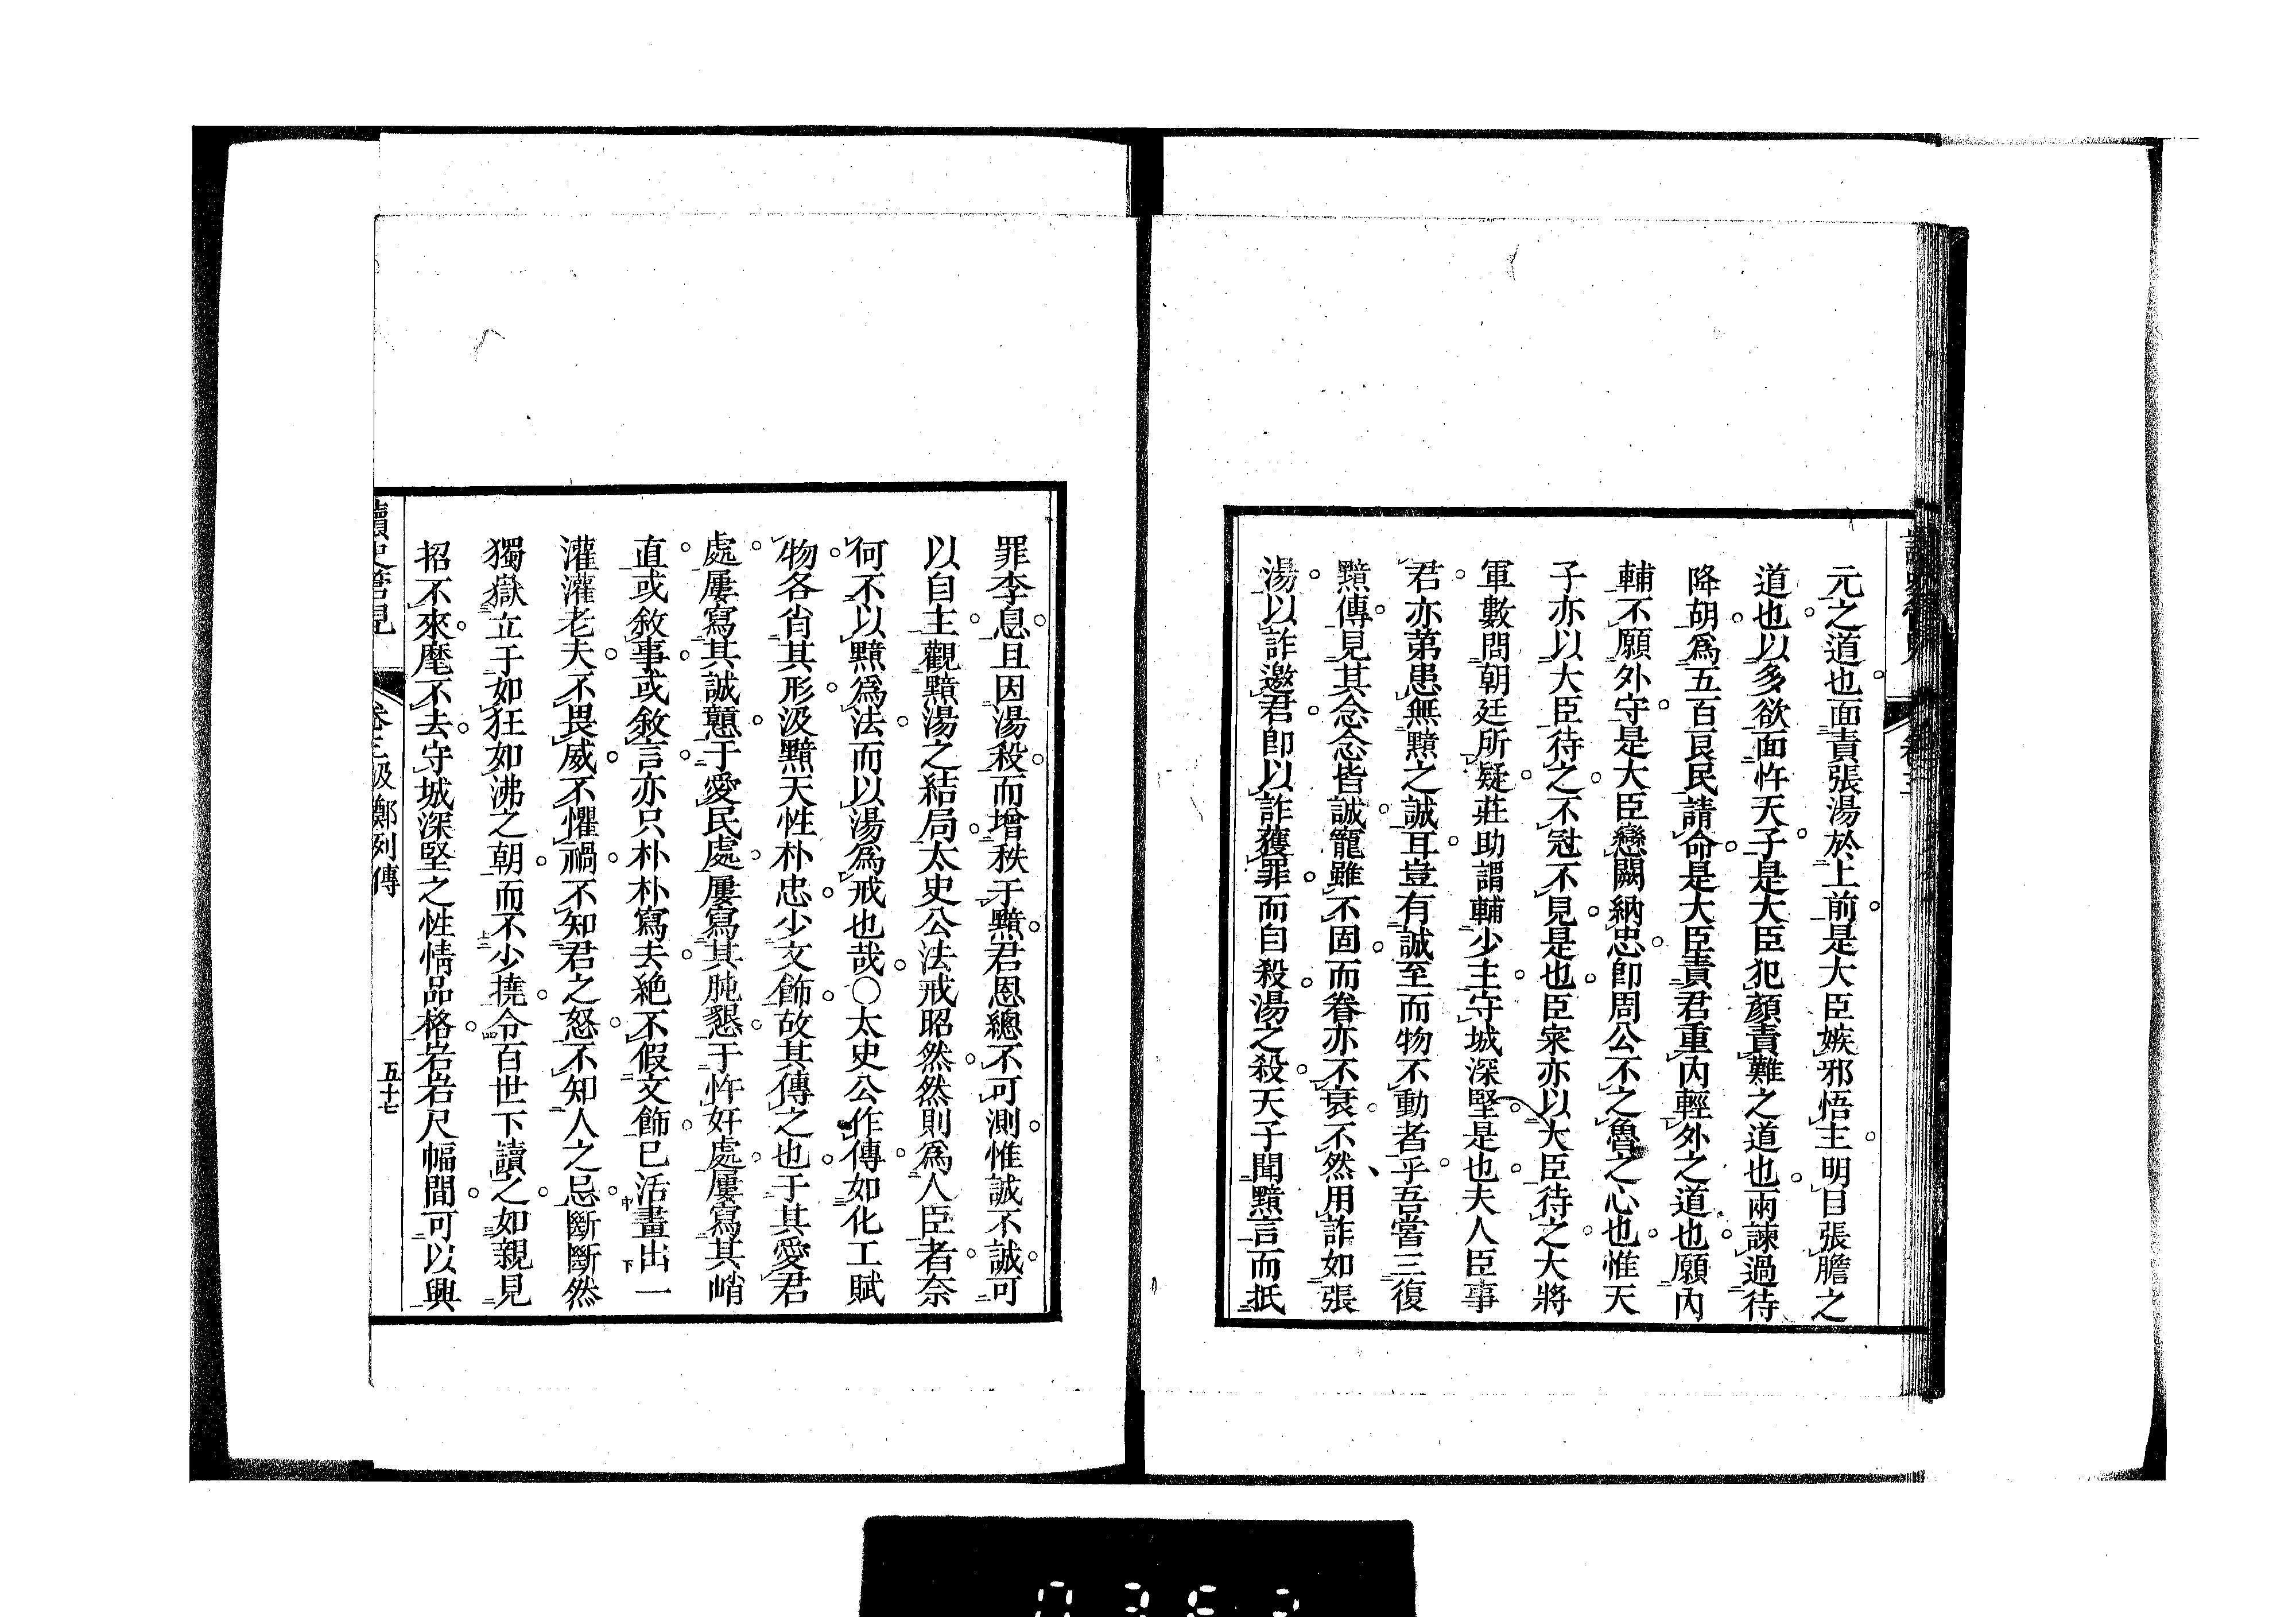 元之道也面責張湯於上前是大臣嫉邪悟主明目張膽之
道也以多欲面忤天子是大臣犯顏責難之道也兩諫過待
降胡爲五百良民請命是大臣責君重內輕外之道也願內
輔不願外守是大臣戀闕納忠卽周公不之魯之心也惟天
子亦以大臣待之不冠不見是也臣寀亦以大臣待之大將
軍數問朝廷所疑莊助謂輔少主守城深堅是也夫人臣事
君亦第患無黯之誠耳豈有誠至而物不動者乎吾嘗三復
黯傳見其念念皆誠寵雖不固而眷亦不衰不然用詐如張
湯以詐邀君卽以詐獲罪而自殺湯之殺天子聞黯言而抵
罪李息且因湯殺而增秩于黯君恩總不可測惟誠不誠可
以自主觀黯湯之結局太史公法戒昭然然則爲人臣者奈
何不以黯爲法而以湯爲戒也哉〇太史公作傳如化工賦
物各肖其形汲黯天性朴忠少文飾故其傳之也于其愛君
處屢寫其誠戇于愛民處屢寫其肫懇于忤奸處屢寫其峭
直或敘事或敘言亦只朴朴寫去絶不假文飾已活畫出一
灌灌老夫不畏威不懼禍不知君之怒不知人之忌斷斷然
獨嶽立于如狂如沸之朝而不少撓令百世下讀之如親見
招不來麾不去守城深堅之性情品格岩岩尺幅間可以興
讀史管見
卷三汲鄭列傳
五十七